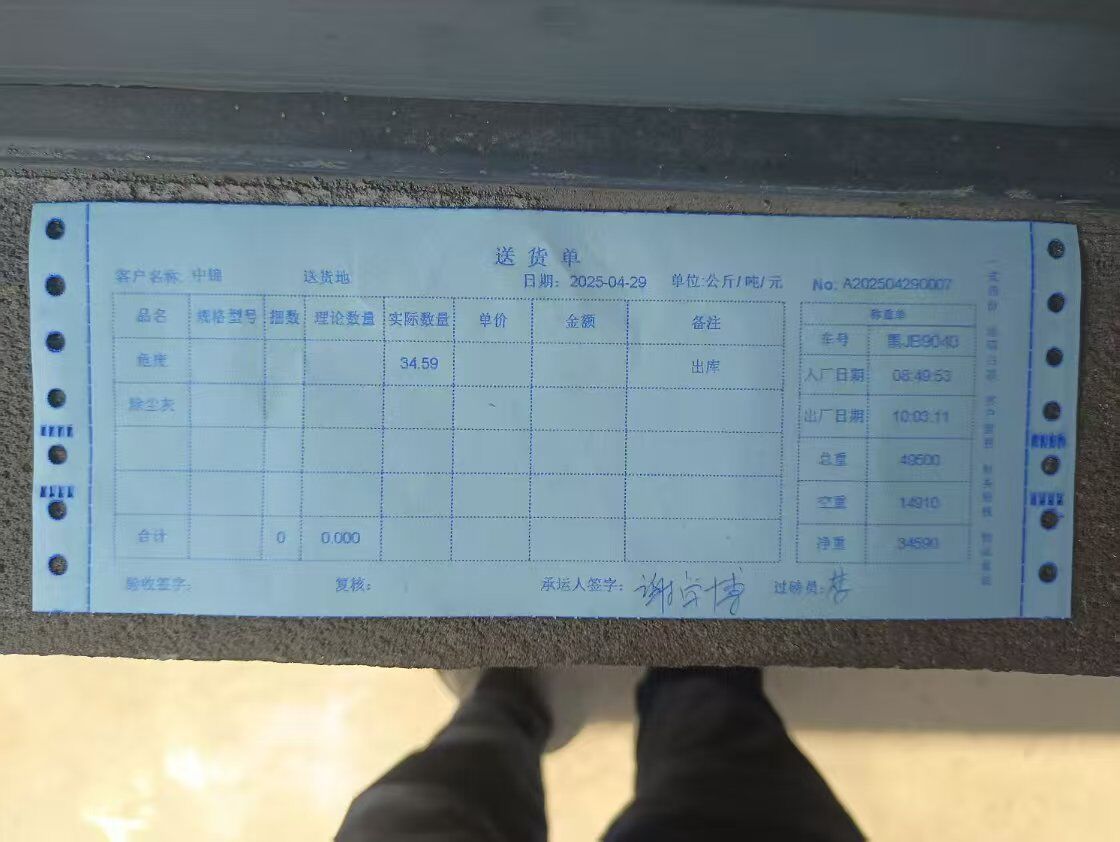 送货单
客户名称: 中锦 送货地 日期: 2025-04-29 单位:公斤/吨/元 No: A202504290007
品名 规格型号 捆数 理论数量 实际数量 单价 金额 备注
危废 34.59 出库
除尘灰
合计 0 0.000
称重单
车号 黑JB9040
入厂日期 08:49:53
出厂日期 10:03:11
总重 49500
空重 14910
净重 34590
验收签字: 复核: 承运人签字: 过磅员: